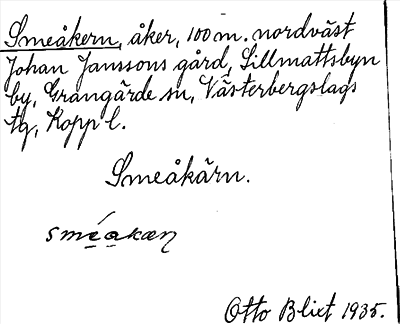 Smeåkern, åker, 100 m. nordväst
Johan Janssons gård, Sillmattsbyn
by, Grangärde sn, Västerbergslags
tg, Kopp l.
Smeåkärn.
Otto Blixt 1935.